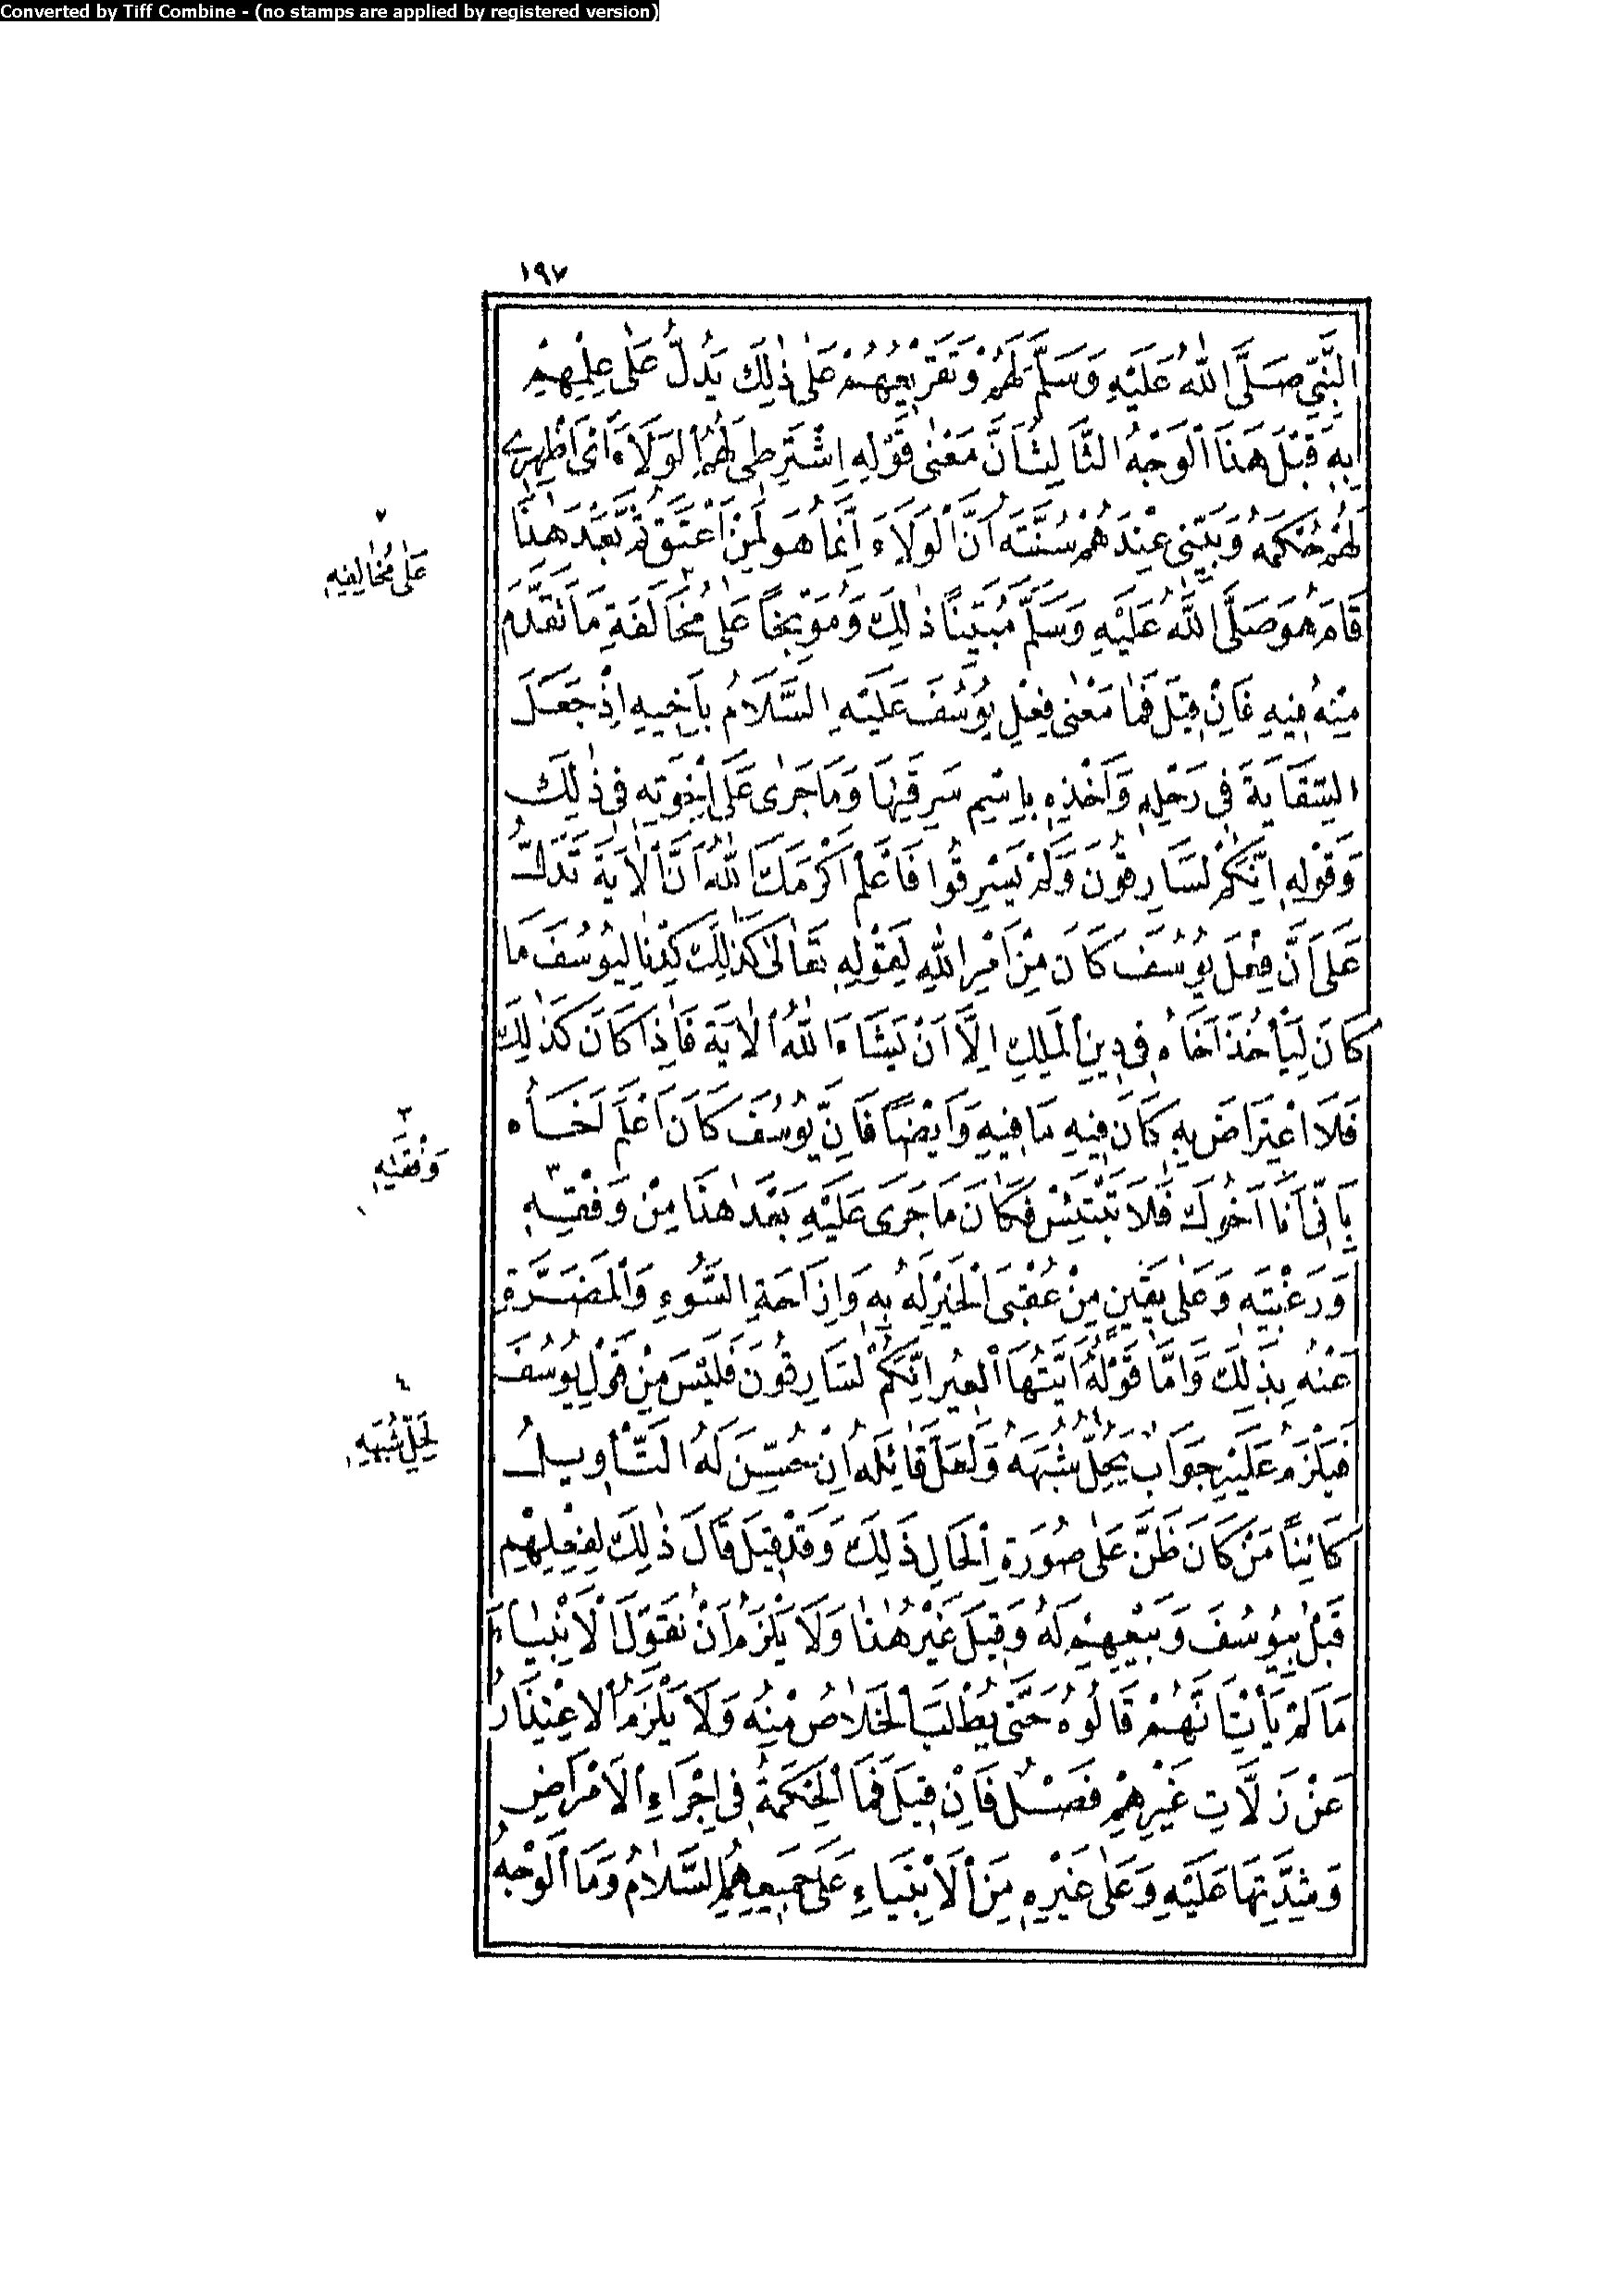 Converted by Tiff Combine - (no stamps are applied by registered version)
١٩٧
النَّبِيِّ صَلَّى اللهُ عَلَيْهِ وَسَلَّمَ لَهُمْ وَتَقْرِيعُهُمْ عَلٰى ذٰلِكَ يَدُلُّ عَلٰى عِلْمِهِمْ
بِهِ قَبْلَ هَذَا اَلْوَجْهُ الثَّالِثُ اَنَّ مَعْنٰى قَوْلِهِ اِشْتَرِطِى لَهُمُ الْوَلَاءَ اَىْ اَظْهِرِى
لَهُمْ حُكْمَهُ وَبَيِّنِى عِنْدَهُمْ سُنَّتَهُ اَنَّ الْوَلَاءَ اِنَّمَا هُوَ لِمَنْ اَعْتَقَ ثُمَّ بَعْدَ هٰذَا
قَامَ هُوَ صَلَّى اللهُ عَلَيْهِ وَسَلَّمَ مُبَيِّنًا ذٰلِكَ وَمُوَبِّخًا عَلٰى مُخَالَفَةِ مَا تَقَدَّمَ
مِنْهُ فِيهِ فَاِنْ قِيلَ فَمَا مَعْنٰى فِعْلِ يُوسُفَ عَلَيْهِ السَّلَامُ بِاَخِيهِ اِذْ جَعَلَ
السِّقَايَةَ فِى رَحْلِهِ وَاَخْذِهِ بِاِسْمِ سَرِقَتِهَا وَمَا جَرٰى عَلَى اِخْوَتِهِ فِى ذٰلِكَ
وَقَوْلِهِ اِنَّكُمْ لَسَارِقُونَ وَلَمْ يَسْرِقُوا فَاعْلَمْ اَكْرَمَكَ اللهُ اَنَّ الْاٰيَةَ تَدُلُّ
عَلَى اَنَّ فِعْلَ يُوسُفَ كَانَ مِنْ اَمْرِ اللهِ لِقَوْلِهِ تَعَالٰى كَذٰلِكَ كِدْنَا لِيُوسُفَ مَا
كَانَ لِيَأْخُذَ اَخَاهُ فِى دِينِ الْمَلِكِ اِلَّا اَنْ يَشَاءَ اللهُ الْاٰيَةَ فَاِذَا كَانَ كَذٰلِكَ
فَلَا اعْتِرَاضَ بِهِ كَانَ فِيهِ مَا فِيهِ وَاَيْضًا فَاِنَّ يُوسُفَ كَانَ اَعْلَمَ اَخَاهُ
بِاَنِّى اَنَا اَخُوكَ فَلَا تَبْتَئِسْ فَكَانَ مَا جَرَى عَلَيْهِ بَعْدَ هٰذَا مِنْ وَفْقِهِ
وَرَغْبَتِهِ وَعَلٰى يَقِينٍ مِنْ عُقْبَى الْخَيْرِ لَهُ بِهِ وَاِزَاحَةِ السُّوءِ وَالْمَضَرَّةِ
عَنْهُ بِذَلِكَ وَاَمَّا قَوْلُهُ اَيَّتُهَا الْعِيرُ اِنَّكُمْ لَسَارِقُونَ فَلَيْسَ مِنْ قَوْلِ يُوسُفَ
فَيَلْزَمُ عَلَيْهِ جَوَابٌ يَحُلُّ شُبَهَهُ وَلَعَلَّ قَائِلَهُ اِنْ حُسِّنَ لَهُ التَّأْوِيلُ
كَائِنًا مَنْ كَانَ ظَنَّ عَلٰى صُورَةِ الْحَالِ ذَلِكَ وَقَدْ قِيلَ قَالَ ذٰلِكَ لِفِعْلِهِمْ
قَبْلُ بِيُوسُفَ وَبَيْعِهِمْ لَهُ وَقِيلَ غَيْرُ هٰذَا وَلَا يَلْزَمُ اَنْ نُقَوِّلَ الْاَنْبِيَاءَ
مَا لَمْ يَأْتِ اَنَّهُمْ قَالُوهُ حَتّٰى يُطْلَبَ الْخَلَاصُ مِنْهُ وَلَا يَلْزَمُ الْاِعْتِذَارُ
عَنْ زَلَّاتِ غَيْرِهِمْ فَصْلٌ فَاِنْ قِيلَ فَمَا الْحِكْمَةُ فِى اِجْرَاءِ الْاَمْرَاضِ
وَشِدَّتِهَا عَلَيْهِ وَعَلٰى غَيْرِهِ مِنَ الْاَنْبِيَاءِ عَلَى جَمِيعِهِمُ السَّلَامُ وَمَا الْوَجْهُ
٧
عَلٰى مُخَالِفِيهِ
٣
وَفْقَتِهِ
٤
لِحَلِّ شُبْهَةٍ